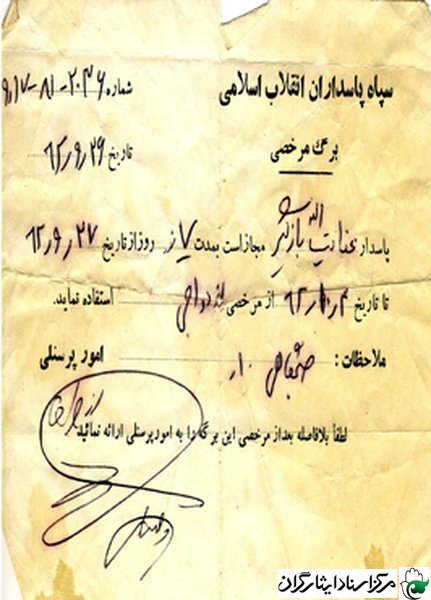 سپاه پاسداران انقلاب اسلامی
شماره
برگ مرخصی
تاریخ ۶۲/۹/۲۶
پاسدار عنایت الله بازگیر مجاز است بمدت ۷ روز از تاریخ ۶۲/۹/۲۷
تا تاریخ ۶۲/۱۰/۴ از مرخصی ازدواج استفاده نماید.
ملاحظات : امور پرسنلی
لطفاً بلافاصله بعد از مرخصی این برگه را به امور پرسنلی ارائه نمائید.
مرکز اسناد ایثارگران